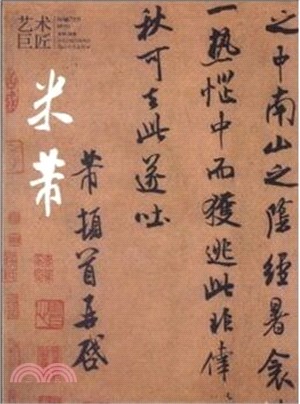 艺术
巨匠
米芾
之中南山之陰經暑衾
一熱惱中而獲逃此非倖之
秋可去此遂吐
芾頓首再啓